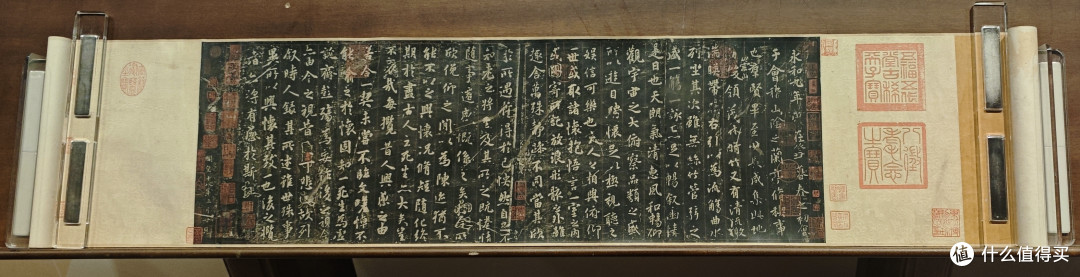 五福五代堂古稀天子寶
八徵耄念之寶
永和九年歲在癸丑暮春之初會
于會稽山陰之蘭亭脩稧事
也群賢畢至少長咸集此地
有峻領茂林脩竹又有清流激
湍暎帶左右引以為流觴曲水
列坐其次雖無絲竹管弦之
盛一觴一詠亦足以暢敘幽情
是日也天朗氣清惠風和暢仰
觀宇宙之大俯察品類之盛
所以遊目騁懷足以極視聽之
娛信可樂也夫人之相與俯仰
一世或取諸懷抱悟言一室之內
或因寄所託放浪形骸之外雖
趣舍萬殊靜躁不同當其欣
於所遇蹔得於己怏然自足不
知老之將至及其所之既惓情
隨事遷感慨係之矣向之所
欣俛仰之閒以為陳迹猶不
能不以之興懷況脩短隨化終
期於盡古人云死生亦大矣豈
不痛哉每攬昔人興感之由
若合一契未嘗不臨文嗟悼不
能喻之於懷固知一死生為虛
誕齊彭殤為妄作後之視今
亦由今之視昔悲夫故列
敘時人錄其所述雖世殊事
異所以興懷其致一也後之攬
者亦將有感於斯文
值 什么值得买